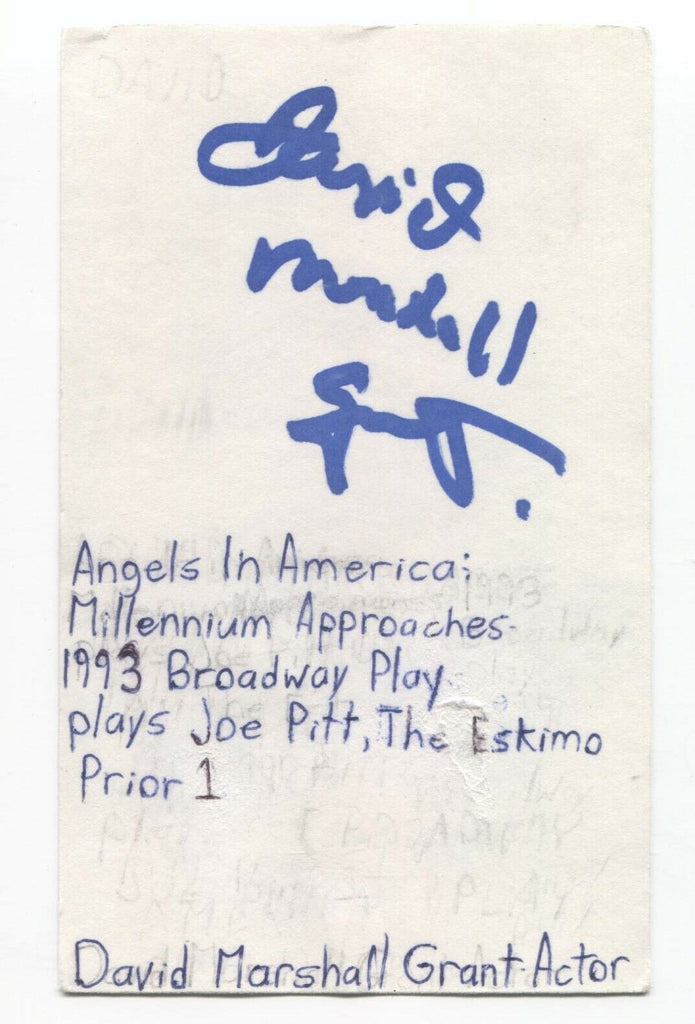 David
Marshall
Grant
Angels In America:
Millennium Approaches-
1993 Broadway Play
plays Joe Pitt, The Eskimo
Prior 1
David Marshall Grant-Actor
DAVID